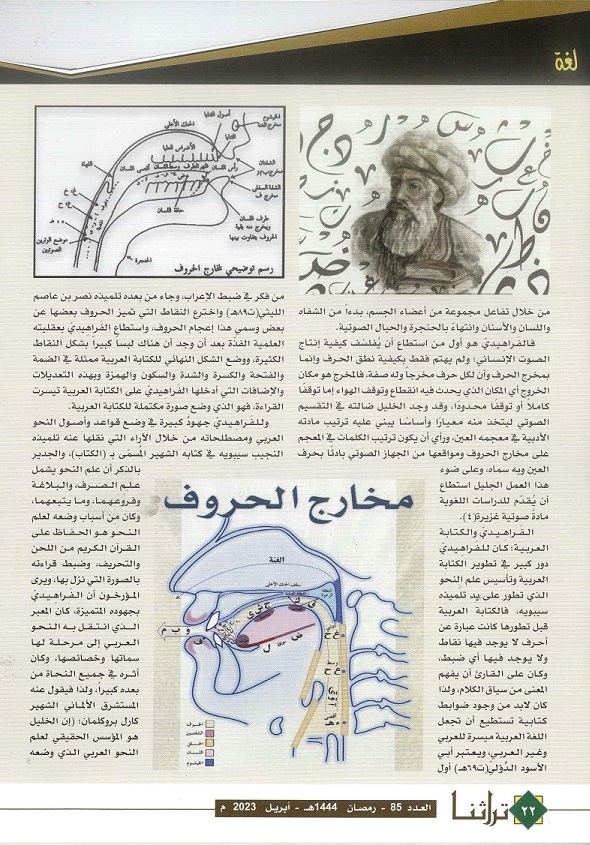 لغة
الخيشوم
مخرج الغنة
أصول الثنايا
الثنايا
الحنك الأعلى
الأضراس العليا
اللهاة
أقصى اللسان
وسط اللسان
ظهر الطرف
رأس اللسان
الشفتان
الشفة السفلى
مخرج ف
حافة اللسان
طرف اللسان
ويخرج منه بقية
الحروف بتفاوت بينها
موضع الوترين
الصوتيين
الحنجرة
رسم توضيحي لمخارج الحروف
من خلال تفاعل مجموعة من أعضاء الجسم، بدءاً من الشفاه
واللسان والأسنان وانتهاءً بالحنجرة والحبال الصوتية.
فالفراهيدي هو أول من استطاع أن يُفلسف كيفية إنتاج
الصوت الإنساني؛ ولم يهتم فقط بكيفية نطق الحرف وإنما
بمخرج الحرف وأن لكل حرف مخرجاً وله صفة، فالمخرج هو مكان
الخروج أي المكان الذي يحدث فيه انقطاع وتوقف الهواء إما توقفًا
كاملاً أو توقفًا محدودًا، وقد وجد الخليل ضالته في التقسيم
الصوتي ليتخذ منه معيارًا وأساسًا يبني عليه ترتيب مادته
الأدبية في معجمه العين، ورأي أن يكون ترتيب الكلمات في المعجم
على مخارج الحروف ومواقعها من الجهاز الصوتي بادئًا بحرف
العين وبه سماه، وعلى ضوء
هذا العمل الجليل استطاع
أن يُقدّم للدراسات اللغوية
مادة صوتية غزيرة(٤).
الفراهيدي والكتابة
العربية: كان للفراهيدي
دور كبير في تطوير الكتابة
العربية وتأسيس علم النحو
الذي تطور على يد تلميذه
سيبويه، فالكتابة العربية
قبل تطورها كانت عبارة عن
أحرف لا يوجد فيها نقاط
ولا يوجد فيها أي ضبط،
وكان على القارئ أن يفهم
المعنى من سياق الكلام، ولذا
كان لابد من وجود ضوابط
كتابية تستطيع أن تجعل
اللغة العربية ميسرة للعربي
وغير العربي، ويعتبر أبي
الأسود الدُؤلي(ت٦٩هـ) أول
من فكر في ضبط الإعراب، وجاء من بعده تلميذه نصر بن عاصم
الليثي(ت٨٩هـ) واخترع النقاط التي تميز الحروف بعضها عن
بعض وسمي هذا إعجام الحروف، واستطاع الفراهيدي بعقليته
العلمية الفذة بعد أن وجد أن هناك لبساً كبيراً بشكل النقاط
الكثيرة، ووضع الشكل النهائي للكتابة العربية ممثلة في الضمة
والفتحة والكسرة والشدة والسكون والهمزة وبهذه التعديلات
والإضافات التي أدخلها الفراهيدي على الكتابة العربية تيسرت
القراءة، فهو الذي وضع صورة مكتملة للكتابة العربية.
وللفراهيدي جهودً كبيرة في وضع قواعد وأصول النحو
العربي ومصطلحاته من خلال الآراء التي نقلها عنه تلميذه
النجيب سيبويه في كتابه الشهير المُسمَى بـ (الكتاب)، والجدير
بالذكر أن علم النحو يشمل
علم الصرف، والبلاغة
وفروعهما، وما يتبعهما،
وكان من أسباب وضعه لعلم
النحو هو الحفاظ على
القرآن الكريم من اللحن
والتحريف، وضبط قراءته
بالصورة التي نزل بها، ويرى
المؤرخون أن الفراهيدي
بجهوده المتميزة، كان المعبر
الذي انتقل به النحو
العربي إلى مرحلة لها
سماتها وخصائصها، وكان
أثره في جميع النحاة من
بعده كبيرا، ولذا فيقول عنه
المستشرق الألماني الشهير
كارل بروكلمان: (إن الخليل
هو المؤسس الحقيقي لعلم
النحو العربي الذي وضعه
مخارج الحروف
الغنة
سقف الحنك الأعلى
ق
ك
ج ش ي
ض
ل
و ب م
ف
ع ح
الجوف
الشفتين
الحلق
اللسان
الخيشوم
٢٢
تراثنا
العدد 85 - رمضان 1444هـ - أبريل 2023 م